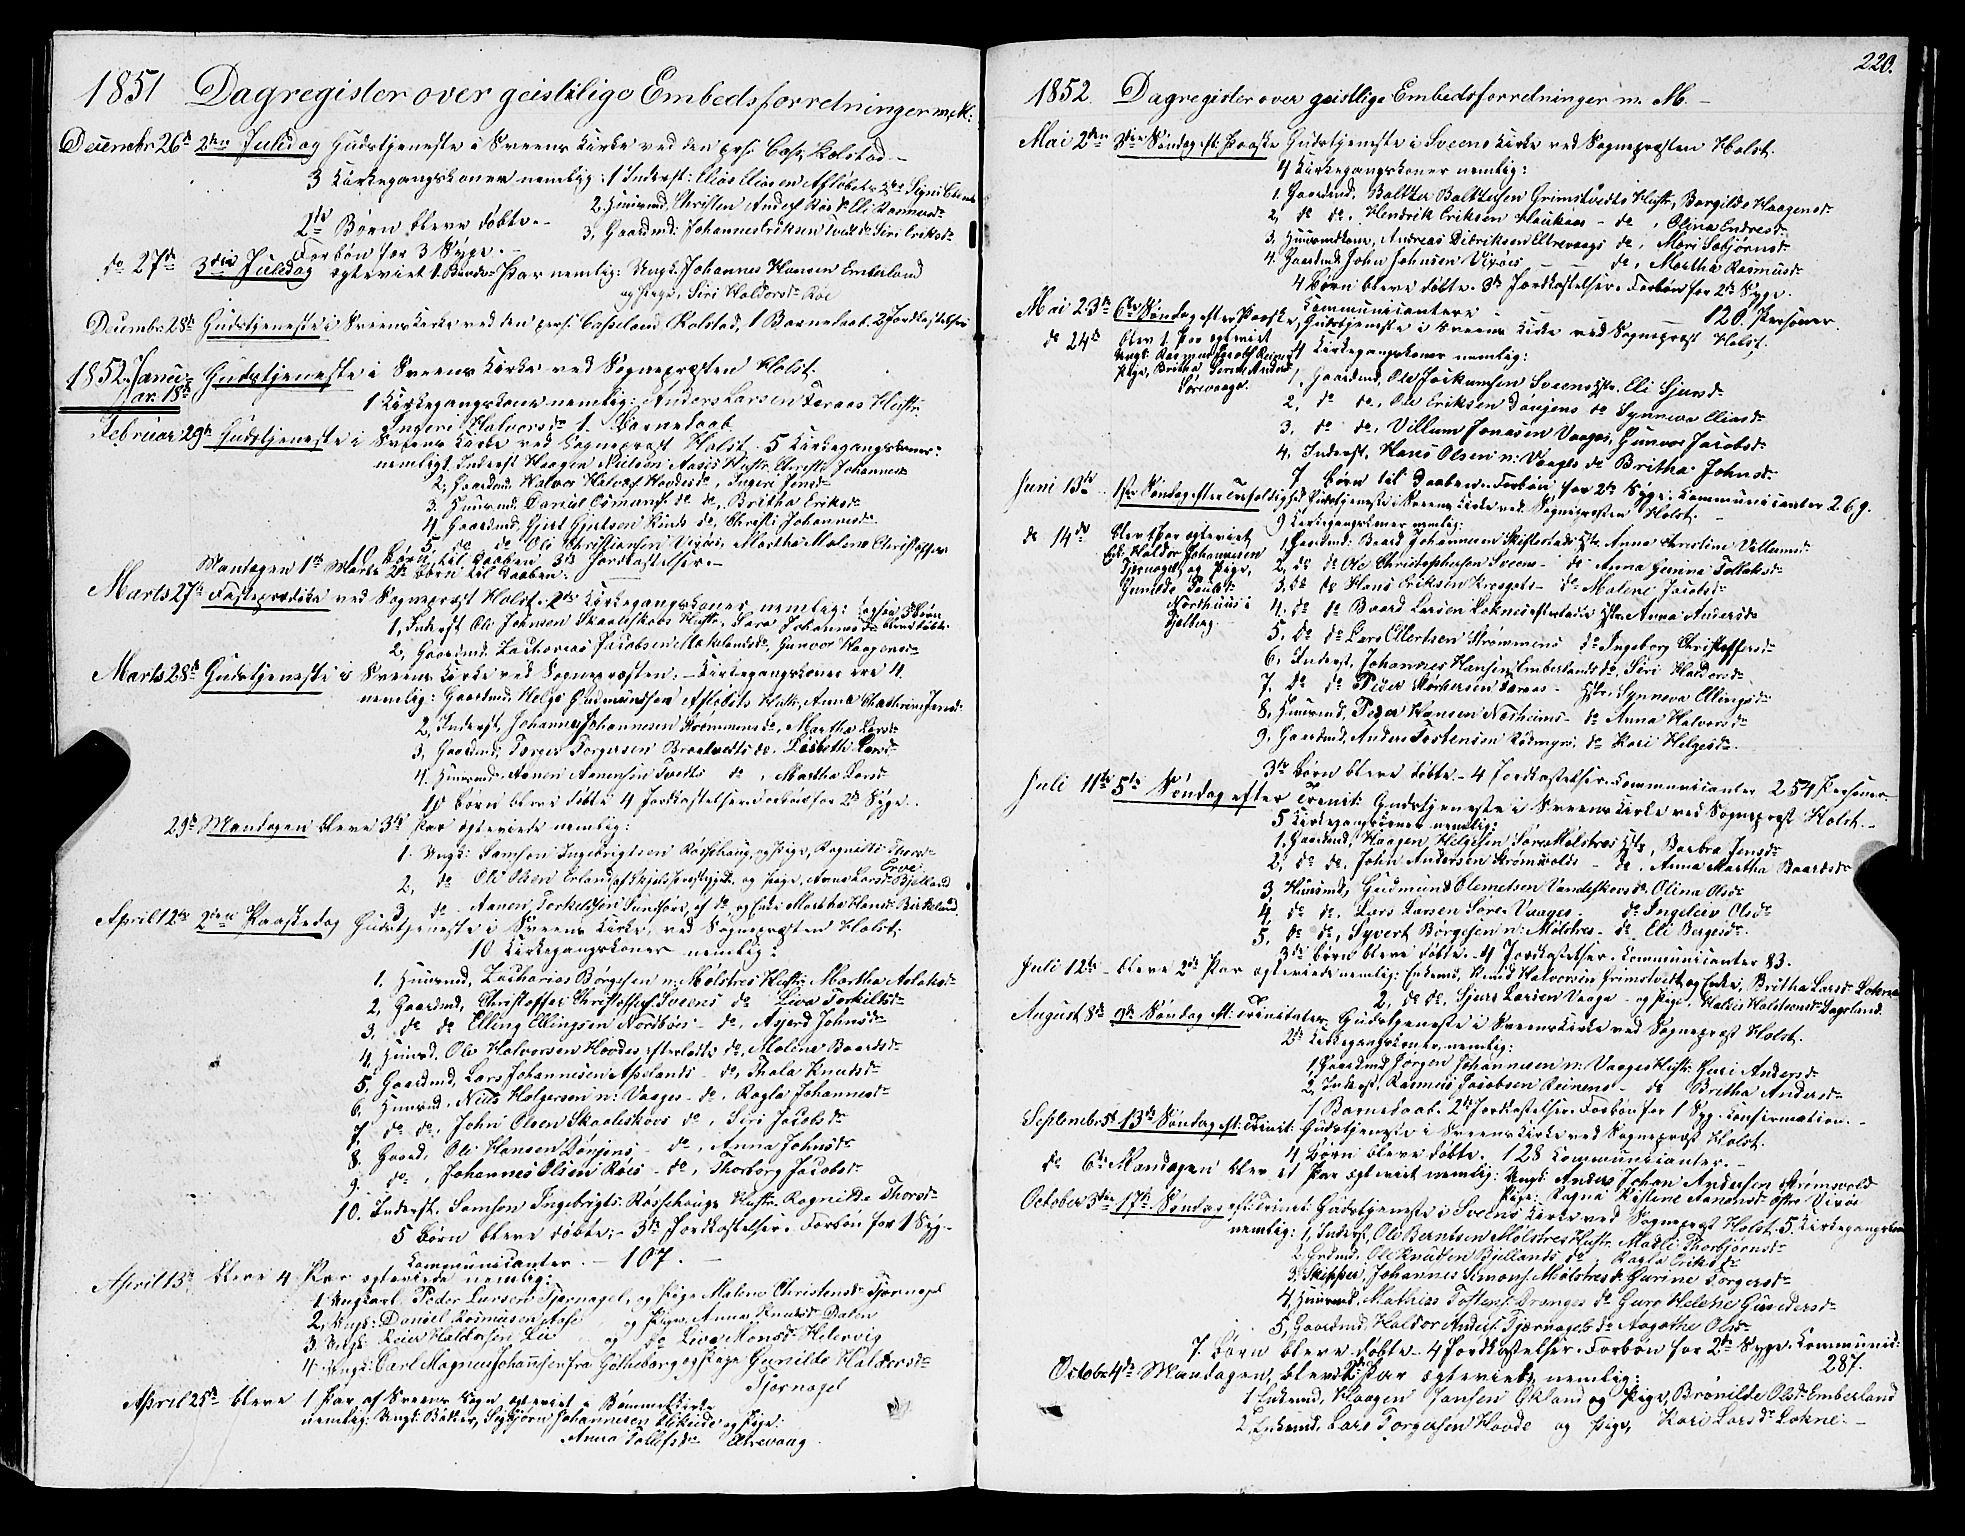 1851 Dagregister over geistilige Embedsforretninger m. M.
Decembr 26d 2den Juledag Gudstjeneste i Sveens Kirke ved den pers: Cap: Kolstad
3 Kirkegangskoner nemlig: 1 Inderst: Elias Eliasen Hustr: Signi
2 Huusmd. Christen Anders: do Eli Rasmusd:
2de Børn bleve døbte.
3, Gaardmd: Johannes Eriksen Tvedt do Siri Eriksdr
Forbøn for 3 Syge.
do 27de 3die Juledag egteviet 1 Par nemlig: Ungk. Johannes Hansen Emberland
og Pige, Siri Haldorsdr Røe
Decembr 28de Gudstjeneste i Sveens Kirke ved den pers: Cappelan Kolstad, 1 Barnedaab. 2 Jordkastelser
1852. Janu-
ar. 18de Gudstjeneste i Sveens Kirke ved Sognepræsten Holst.
1 Kirkegangskone nemlig: Anders Larsen Hustr.
Ingeri Halvorsdr 1. Barnedaab
Februar 29de Gudstjeneste i Sveens Kirke ved Sognepræst Holst. 5 Kirkegangskoner:
nemligt. Inderst Haagen Nielsen Hustr. Christi Johannesdr
2, Gaardmd. Halvor Halvors: do, Ingeri Jensdr
3. Huusmd. Daniel Osmunds: do do, Britha Eriksdr
4 Gaardmd. Gjert Gjertsen do, Christi Johannesdr
5 do do Ole Christiansen Vigøe, Martha Malene Christophersdr
Børn til Daaben. 3de Jordkastelser.
Mandagen 1ste Marts 2de Børn til Daaben.
Marts 27de Fasteprædiken ved Sognepræst Holst. 2de Kirkegangskoner nemlig:
1, Inderst Ole Johnsen Skaaleskovs Hustr, Sara Johannesdr
2, Gaardmd. Zacharias Jacobsen do, Gunvor Haagensdr
Marts 28de Gudstjeneste i Sveens Kirke ved Sognepræsten. Kirkegangskoner ere 4.
nemlig: Gaardmd. Helge Gudmundsen Hustr. Anna Chathrine Jensdr
2, Inderst, Johannes Johannesen Strømmen do, Martha Larsdr
3, Gaardmd. Torger Torgersen do, Lisbeth Larsdr
4. Huusmd. Aanen Aanensen Tvedte do, Martha Larsdr
10 Børn bleve døbte 4 Jordkastelser Forbøn for 2de Syge.
29de Mandagen bleve 3de Par egteviede nemlig:
1. Ungk: Samson Ingebrigtsen Røsschaug, og Pige, Ragnilde Thorsdr
Erve
2, do Ole Olsen og Pige, Anne Larsdr Bjelland
3 do Aanen Torkeldsen og Enke Martha Hansdr Birkeland
April 12te 2den Paaskedag Gudstjeneste i Sveens Kirke, ved Sognepræsten Holst.
10 Kirkegangskoner nemlig:
1. Huusmd. Zacharias Børgesen n: Mølstres Hustr. Martha Aslaksdr
2, Gaardmd, Christoffer Christoffers: Sveens do Liva Torkildsdr
3, do do Elling Ellingsen Nordbøe do, Asjerd Johnsdr
4, Huusmd. Ole Halvorsen Hovdes do, Malene Baardsdr
5, Gaardmd, Lars Johannesen Apelands do, Thala Knudsdr
6, Huusmd. Niels Holgersen n: Vaages do. Ragla Johannesdr
7, do do, John Olsen Skaaleskovs do, Siri Jacobsdr
8. Gaard, Ole Hansen Døejens do, Anna Johnsdr
9. do, Johannes Olsen Røes do, Thorborg Jacobsdr
10. Inderst. Samson Ingebrigts: Røsschaugs Hustr. Ragnilde Thorsdr
5 Børn bleve døbte. 3de Jordkastelser. Forbøn for 1 Syg.
Kommunicanter. 107.
April 13de bleve 4 Par egteviede nemlig:
1. Ungkarl. Peder Larsen Tjernagel, og Pige Malene Christensdr Tjernagel
2, Ungk: Daniel Rasmusen og Pige, Anna Knudsdr Dalen
3 Ungk. Reier Haldorsen Lie og do Liva Monsdr Hillesvig
4. Ungk: Carl Magnus Johannsen fra Gøtheborg og Pige Gunilde Haldorsdr
Tjernagel
April 25de bleve 1 Par af Sveens Sogn egteviet i Bømmel Kirke
nemlig, Ungk: Baker, Sigbjørn Johannesen og Pige:
Anna Tollefsdr Elrevaag
220.
1852. Dagregister over geistlige Embedsforretninger m. M.
Mai 2den 3die Søndag eft: Paaske Gudstjeneste i Sveens Kirke ved Sognepræsten Holst.
4 Kirkegangskoner nemlig:
1. Gaardmd. Balther Balthersen Grimstvedts Hustr, Borgilde Haagensdr
2, do do. Hendrik Eriksen Haukaas do, Olina Endresdr
3, Huusmd, Andreas Didriksen Elrevaags do, Mari Sebjørnsdr
4. Gaardmd John Johnsen Vigøes do, Martha Rasmusdr
4 Børn bleve døbte. 3de Jordkastelser. Forbøn for 2de Syge.
Kommunicantere 120. Personer.
Mai 23de 6te Søndag efter Paaske, Gudstjeneste i Sveens Kirke ved Sognepræst Holst,
do 24de blev 1 Par egteviet
4 Kirkegangskoner nemlig:
Ungk: Rasmus Jacobs: Reinen
Pige, Britha Serine Andersdr
Sørevaage
1, Gaardmd, Ole Jochumsen Sveens Hstr. Eli Sjursdr
2, do do, Ole Eriksen Døejens do Synneva Eliasdr
3, do do, Villum Jonasen Vaages, Gunvor Jacobsdr
4, Inderst, Hans Olsen n: Vaages do Britha Johnsdr
7 Børn til Daaben. Forbøn for 2de Syge. Kommunicanter 269.
Juni 13de 1ste Søndag efter Trefoldighed Gudstjeneste i Sveens Kirke ved Sognepræsten Holst.
9 Kirkegangskoner nemlig:
do 14de blev 1 Par egteviet
Enk: Haldor Johannesen
Tjernagel og Pige,
Gunilde Poulsdr
Northuus i
Fjelberg.
1, Gaardmd: Baard Johannesen Hstr. Anna Christine Villumsdr
2, do do Ole Christophersen Sveens do Anna Gurina Tollaksdr
3, do do Hans Eriksen do Malene Jacobsdr
4. do do Baard Larsen Loknes Hstr. Anna Andersdr
5. do do Lars Ellertsen Strømmens do Ingeborg Christoffersdr
6, Inderst. Johannes Hansen Emberlands do, Siri Haldorsdr
7. do do Peder Hstr. Synneva Ellingsdr
8, Huusmd, Peder Hansen Nesheims do Anna Halvorsdr
9, Gaardmd, Anders Tostensen do Kari Helgesdr
3de Børn bleve døbte. 4 Jordkastelser. Communicanter 254 Personer.
Juli 11te 5te Søndag efter Trenit: Gudstjeneste i Sveens Kirke ved Sognepræst Holst.
5 Kirkegangskoner nemlig:
1, Gaardmd, Haagen Helgesen Søre Mølstres Hstr, Barbra Jensdr
2, do do, John Andersen Strømsvolds do, Anna Martha Baardsdr
3, Huusmd, Gudmund Clemetsen Vandeskovs do, Olina Olsdr
4, do do. Lars Larsen Søre Vaages do Ingeleiv Olsdr
5, do do, Syvert Borgesen n: Mølstres do Eli Børgesdr
3de Børn bleve døbte. 4 Jordkastelser. Communicanter 83.
Juli 12te bleve 2de Par egteviede nemlig: Enkemd, Knud Halvorsen Grimstvedt og Enke, Britha Larsdr Lokne
2, do do, Sjurs Larsen Vaage og Pige, Haldis Haldorsdr Dagsland
August 8de 9de Søndag eft: Trenitatis, Gudstjeneste i Sveens Kirke ved Sognepræst Holst.
2de Kirkegangskoner, nemlig:
1, Gaardmd Jørgen Johannesen n: Vaages Hustr. Guri Andersdr
2, Inderst, Rasmus Jacobsen Reinens do Britha Andersdr
1 Barnedaab. 2de Jordkastelser. Forbøn for 1 Syg. Confirmation.
September 5te 13de Søndag eft: Trenit: Gudstjeneste i Sveens Kirke ved Sognepræst Holst.
4 Børn bleve døbte. 128 Communicanter.
do 6te Mandagen blev et Par egteviet nemlig: Ungk: Anders Johan Andersen Strømsvold
Pige: Ragna Kistine Aanensdr Østre Vigøe
October 3die 17de Søndag eft: Trinit: Gudstjeneste i Sveens Kirke ved Sognepræst Holst. 5 Kirkegangskoner
nemlig: 1, Inderst, Ole Berntsen Mølstres Hustr. Madli Thorbjørnsdr
2, Grdmd, Ole Knudsen Bjellands do, Ragla Eriksdr
3. Skipper, Johannes Simons: Mølstres do Gurine Torgersdr
4, Huusmd, Mathias Tostens: Dranges do Guro Helene Gundersdr
5, Gaardmd. Haldor Anders: Tjernagels do Aagathe Olsdr
7 Børn bleve døbte. 4 Jordkastelser. Forbøn for 2de Syge. Kommunic:
287.
October 4de Mandagen, bleve 2de Par egteviet nemlig:
1 Enkemd, Haagen Jansen Økland og Pige, Brønilde Olsdr Emberland
2, Enkemd, Lars Torgersen Hovde og Pige, Kari Larsdr Lokne.